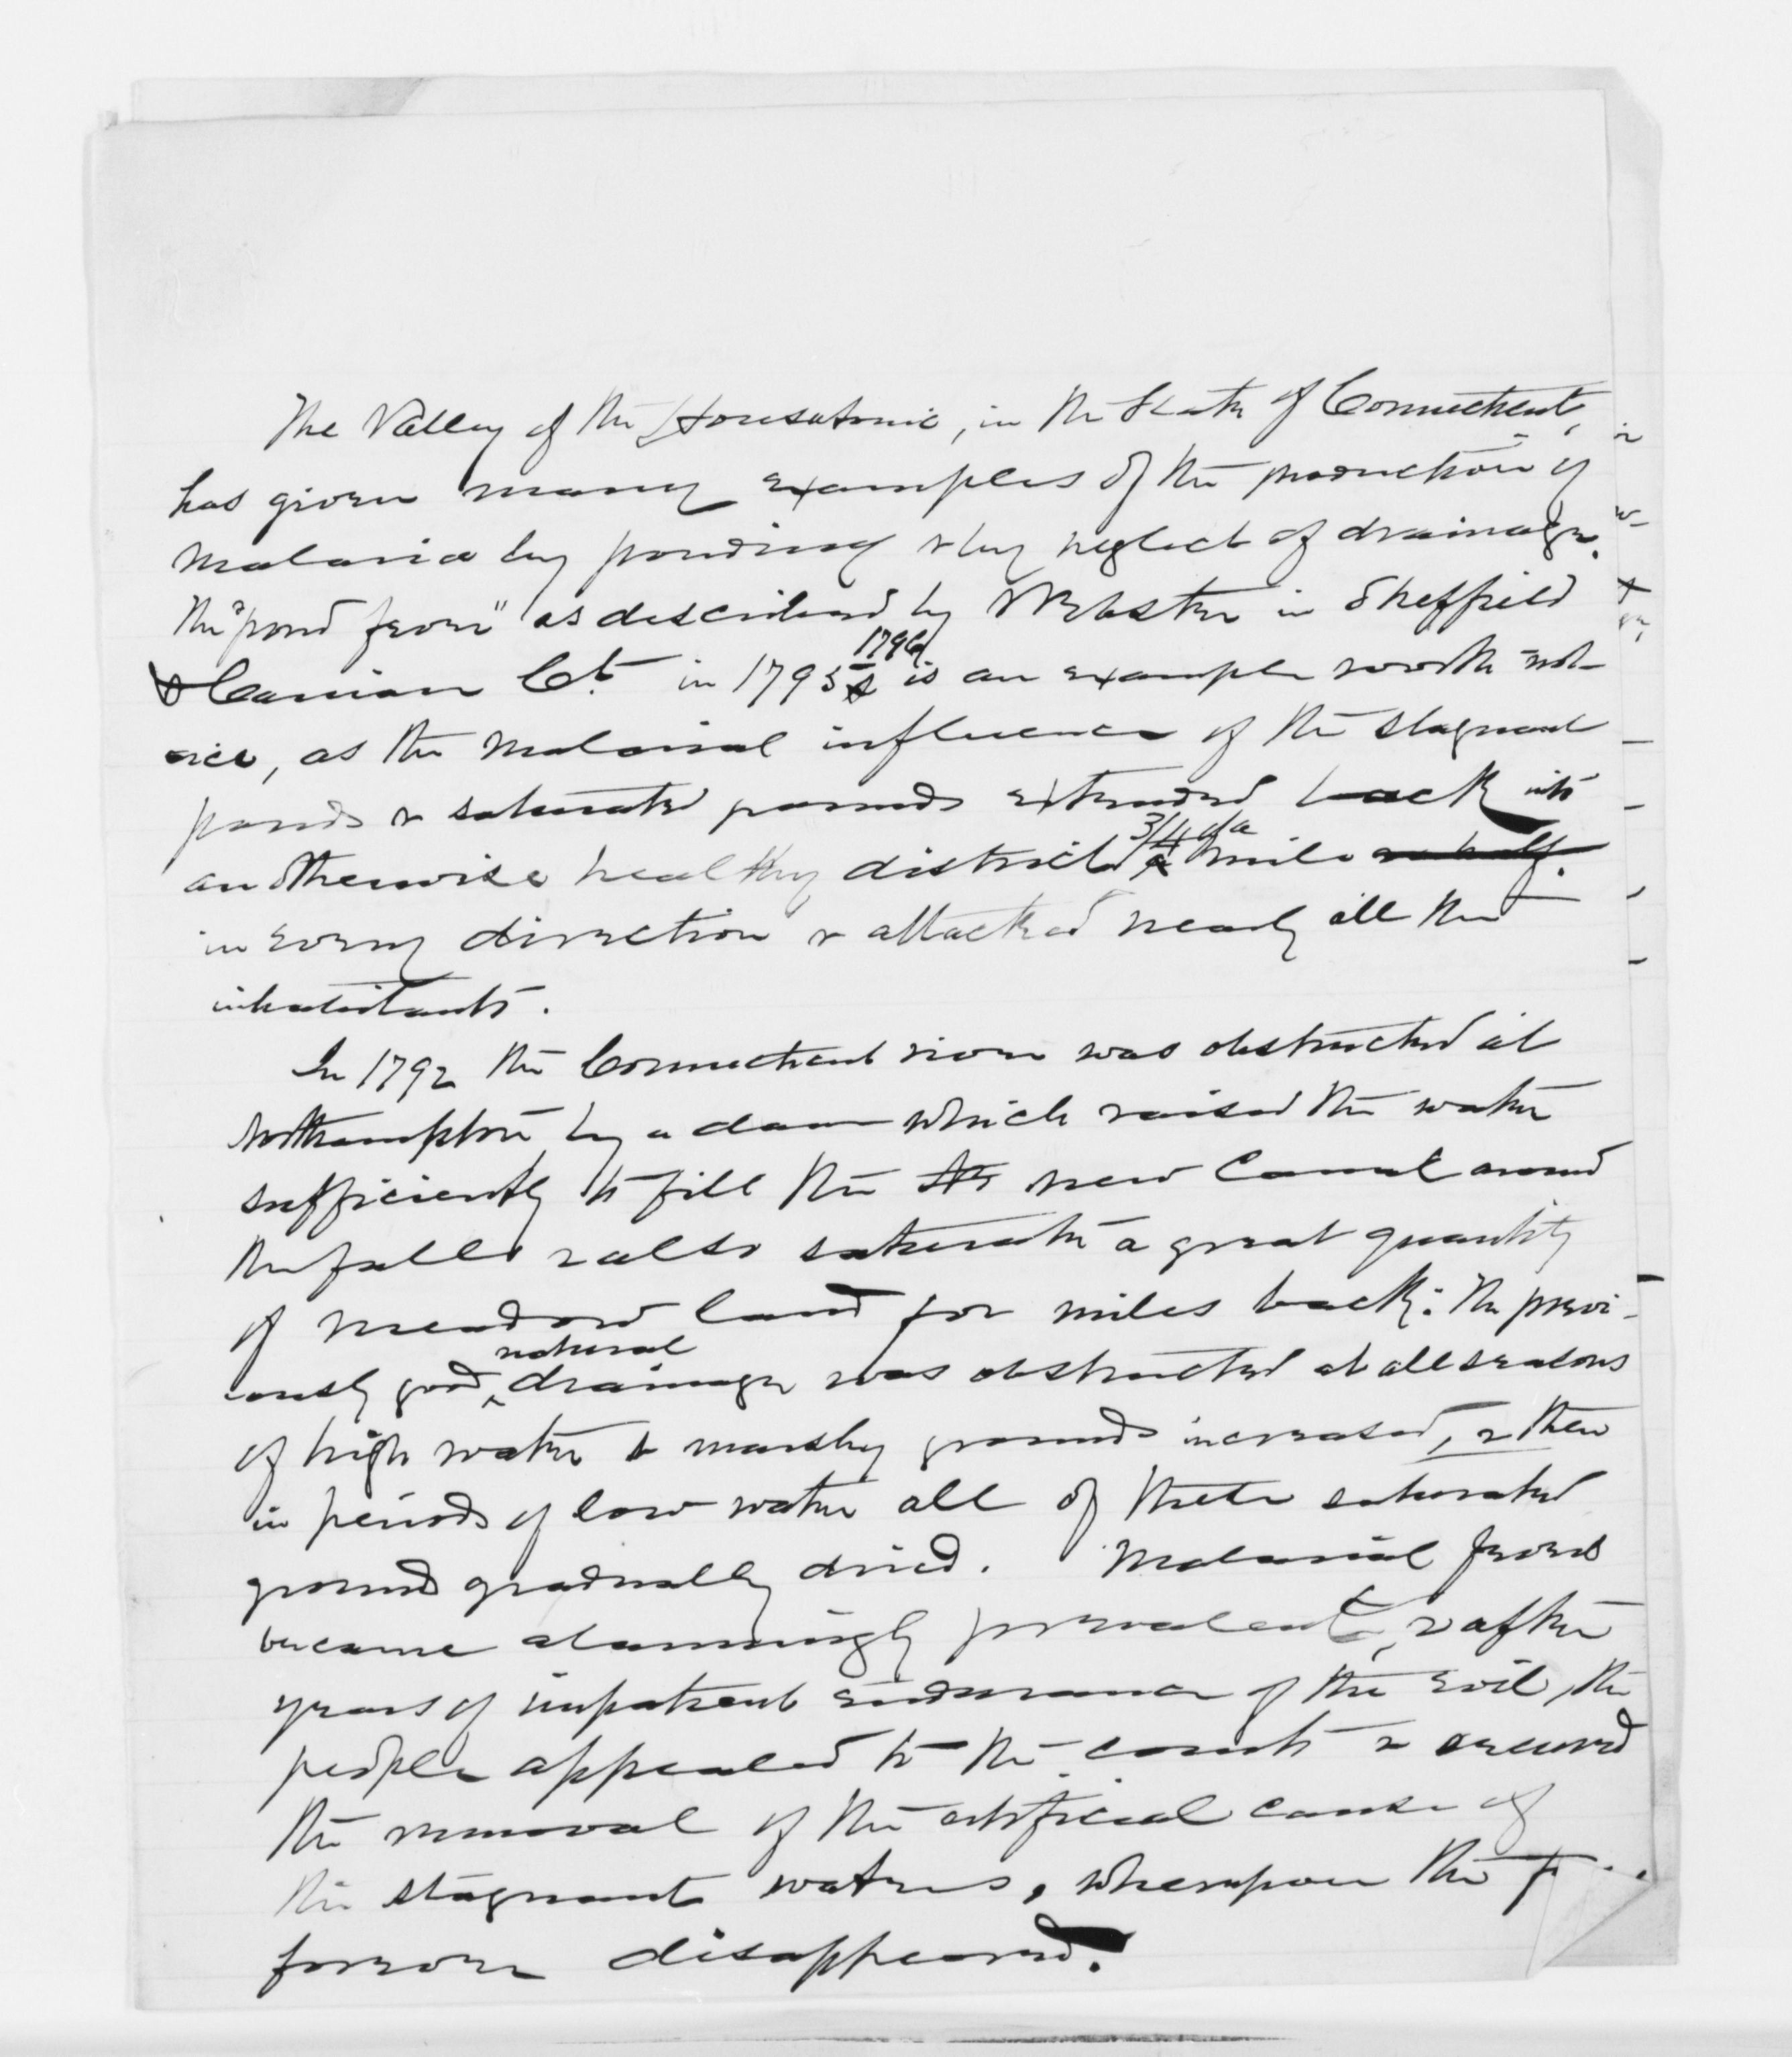 The Valley of the Housatonic, in the State of Connecticut,
has given many examples of the production of
malaria by ponding & by neglect of drainage.
The "pond fever" as described by Webster in Sheffield
& Canaan Ct. in 1795 & 1796 is an example worth not-
ice, as the malarial influence of the stagnant
ponds & saturated grounds extended back into
an otherwise healthy district 3/4 of a mile
in every direction & attacked nearly all the
inhabitants.
In 1792 the Connecticut river was obstructed at
Northampton by a dam which raised the water
sufficiently to fill the new Canal around
the falls & also saturate a great quantity
of meadow land for miles back: The previ-
ously good, natural drainage was obstructed at all seasons
of high water & marshy grounds increased, & then
in periods of low water all of these saturated
grounds gradually dried. Malarial fevers
became alarmingly prevalent, & after
years of impatient endurance of the evil, the
people appealed to the courts & secured
the removal of the artificial cause of
the stagnant waters, whereupon the
forever disappeared.